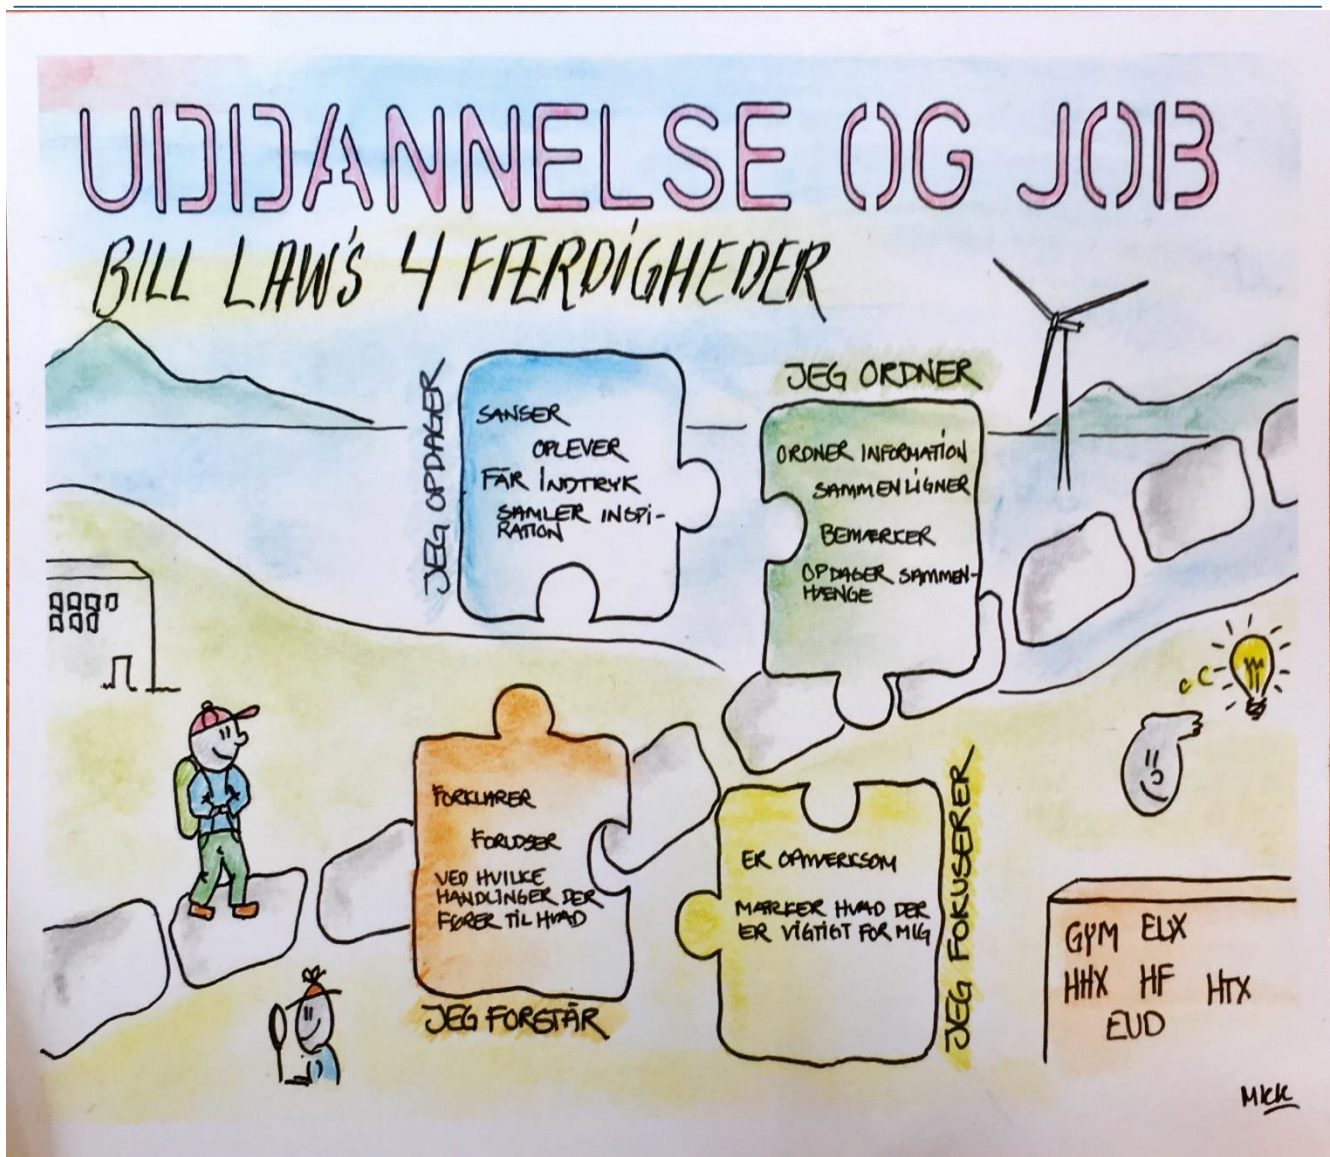 UDDANNELSE OG JOB
BILL LAW'S 4 FÆRDIGHEDER
JEG OPDAGER
SANSER
OPLEVER
FÅR INDTRYK
SAMLER INSPI-
RATION
JEG ORDNER
ORDNER INFORMATION
SAMMENLIGNER
BEMÆRKER
OPDAGER SAMMEN-
HÆNGE
FORKLARER
FORUDSER
VED HVILKE
HANDLINGER DER
FØRER TIL HVAD
JEG FORSTÅR
ER OPMÆRKSOM
MÆRKER HVAD DER
ER VIGTIGT FOR MIG
JEG FOKUSERER
GYM EUX
HHX HF HTX
EUD
MKK